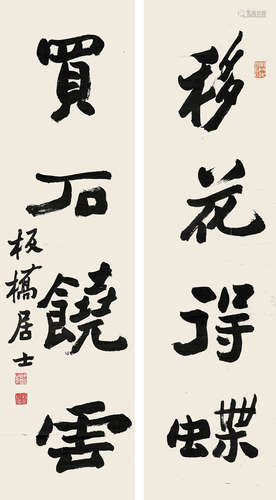 移花得蝶
買石饒雲
板橋居士